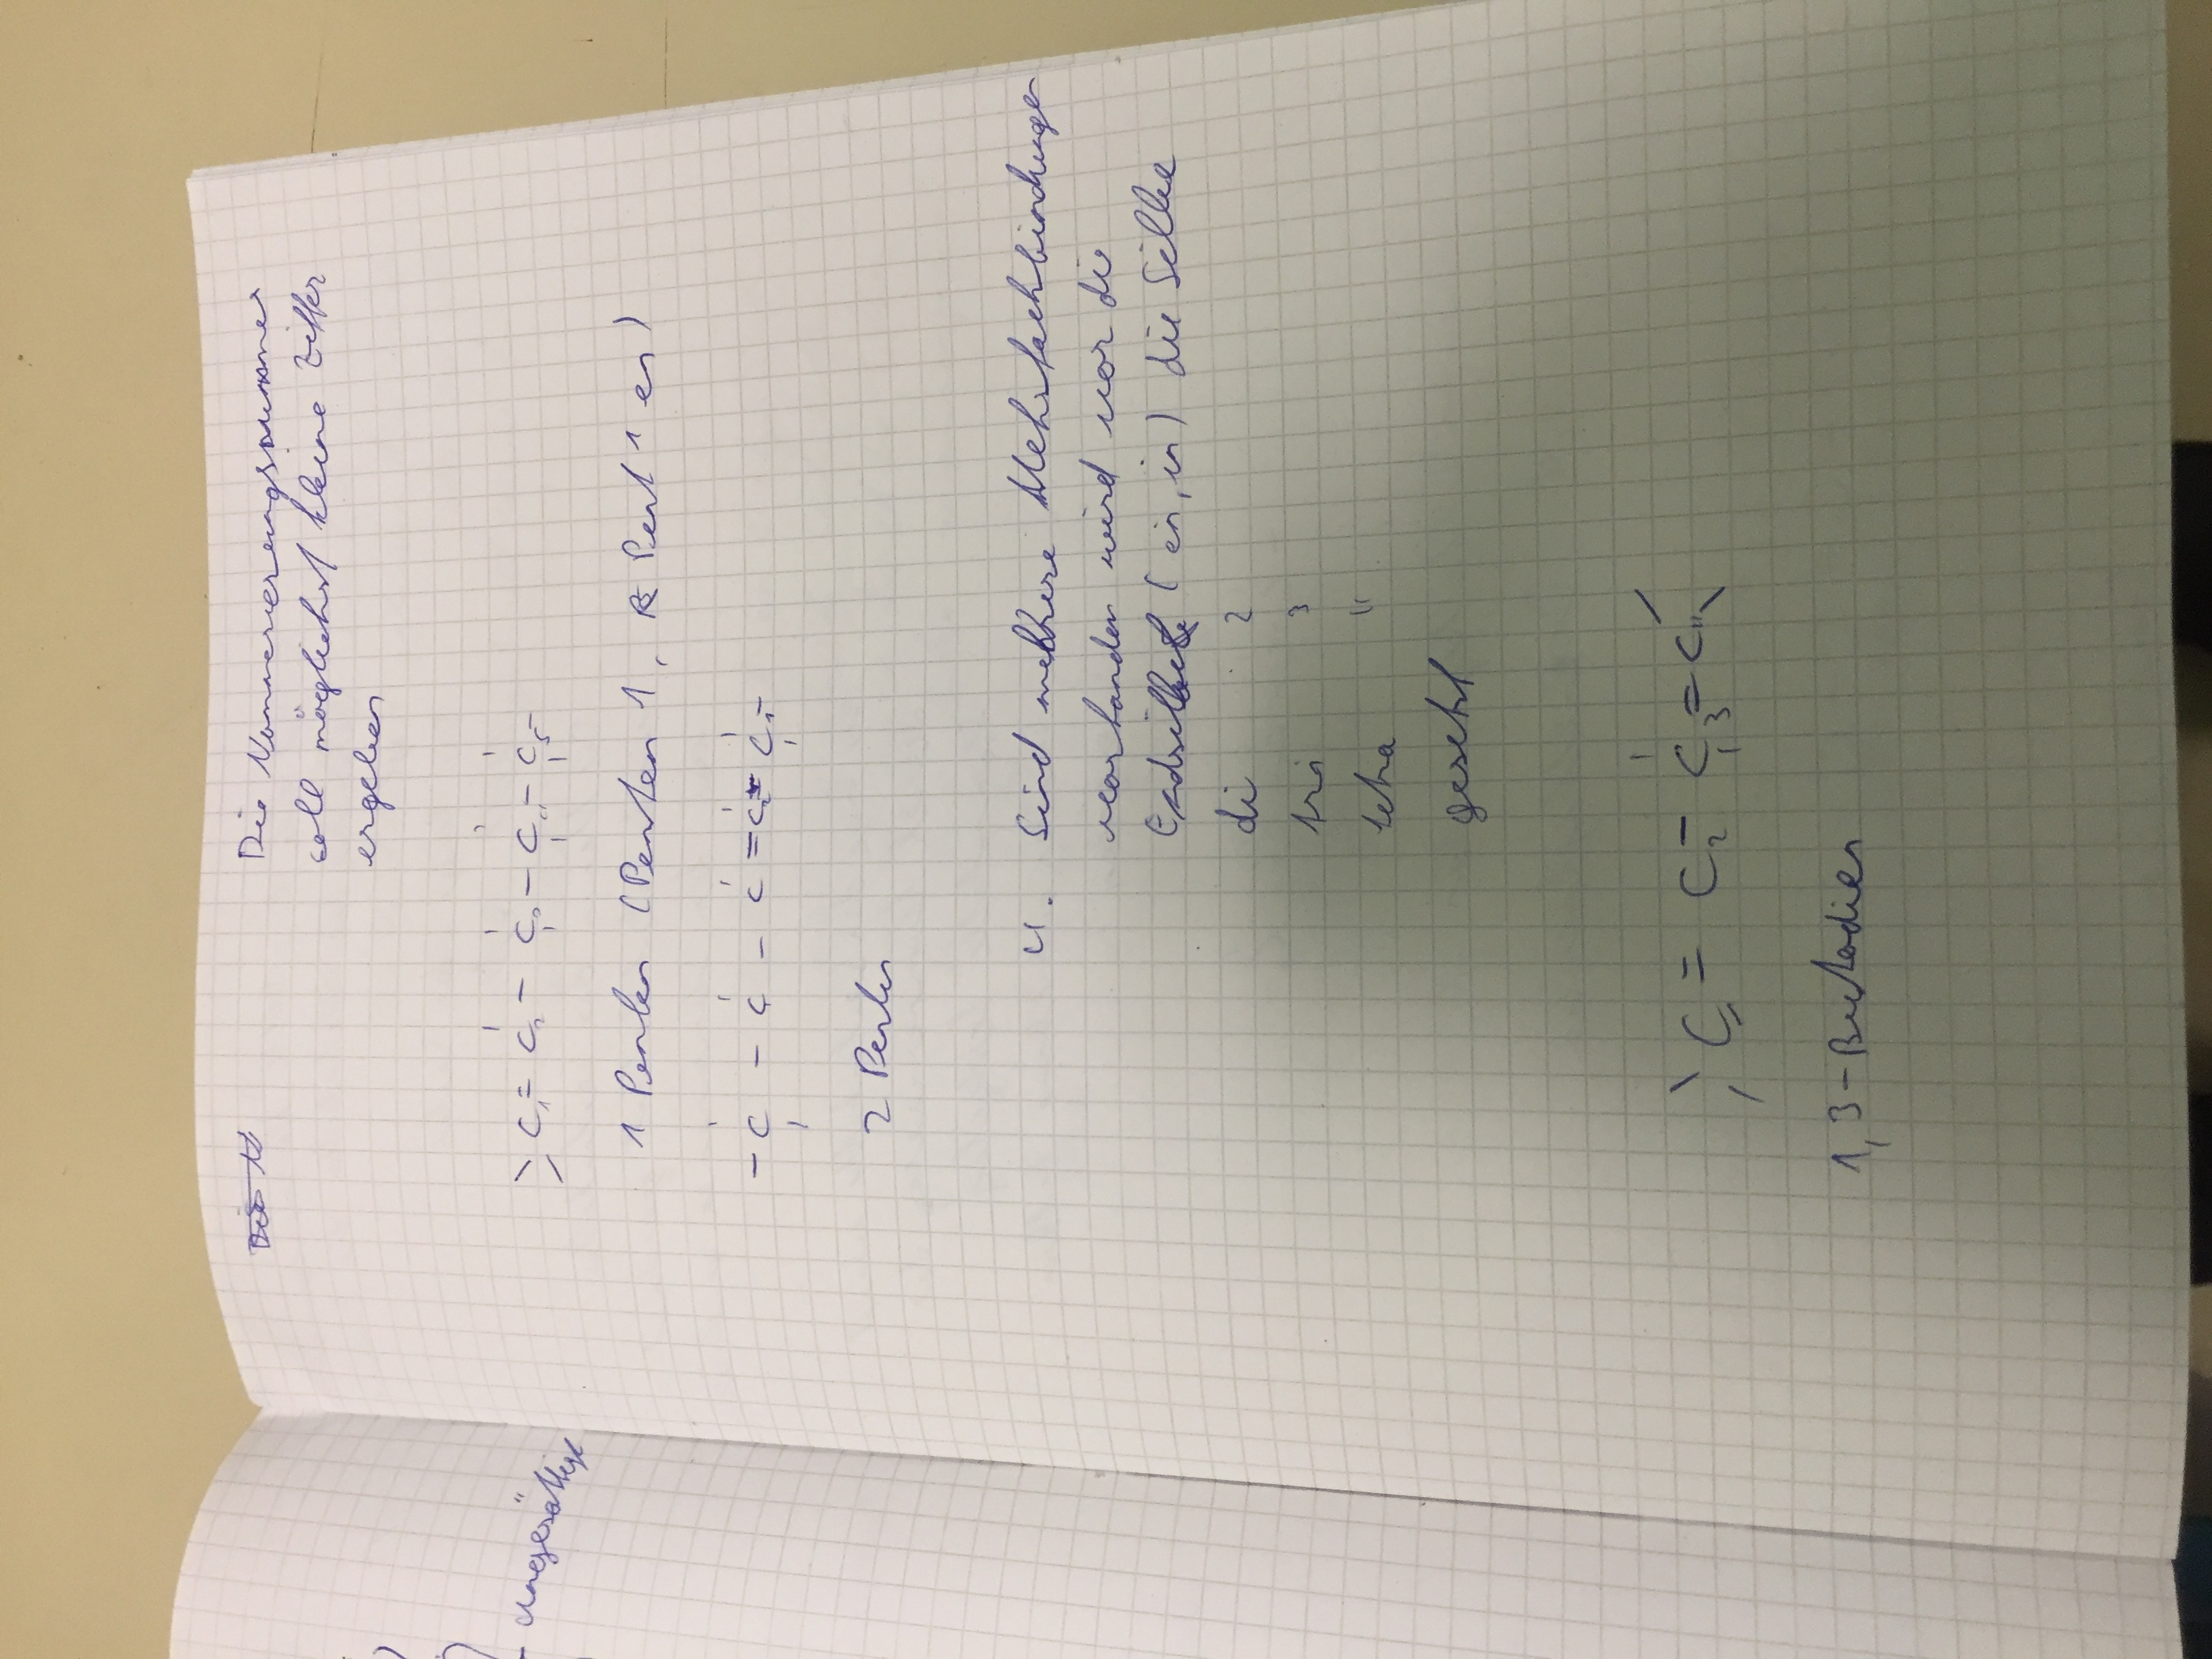 ungesättigt
Die N
Die Nummerierungsnummer
soll möglichst kleine Ziffer
ergeben
C1 = C2 - C3 - C4 - C5 -
1 Penten (Penten 1, Pent 1 en)
- C - C - C = C2 - C1 -
2 Penten
4. Sind mehrere Mehrfachbindungen
vorhanden wird vor die
Endsilbe (en, in) die Silbe
di 2
tri 3
tetra 4
gesetzt
C1 = C2 - C3 = C4
1,3-Butadien